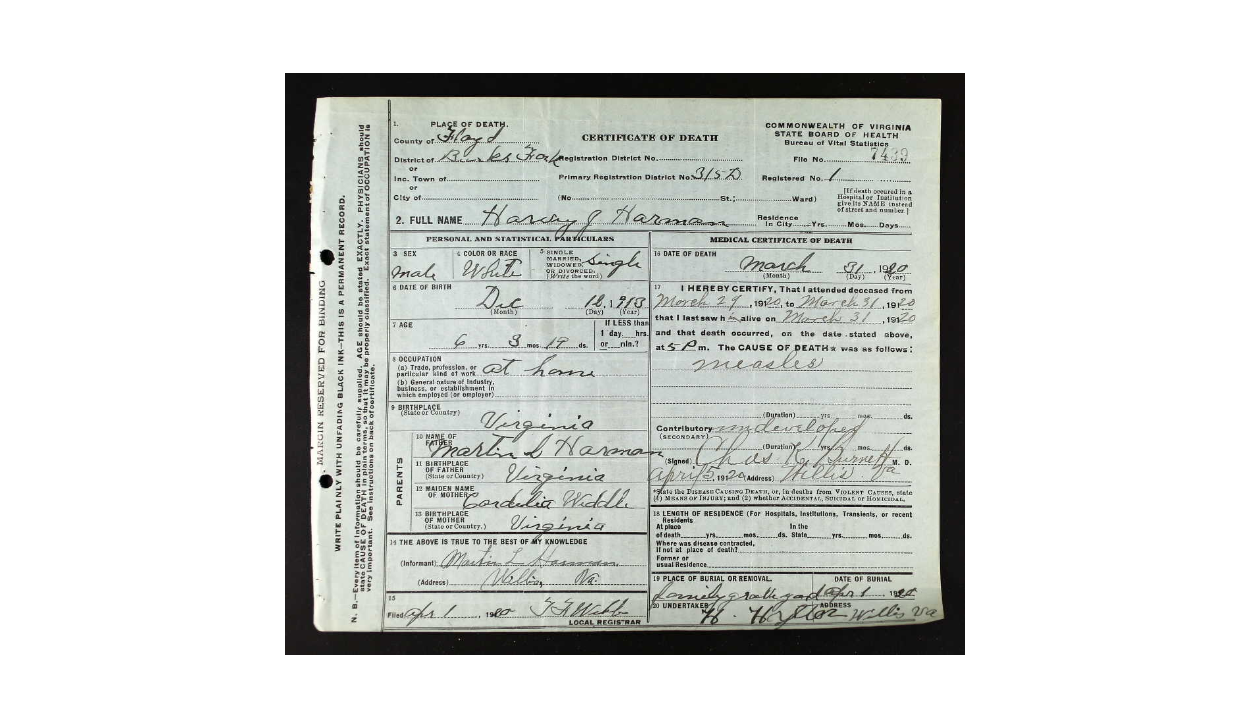 MARGIN RESERVED FOR BINDING
WRITE PLAINLY WITH UNFADING BLACK INK—THIS IS A PERMANENT RECORD.
N. B.—Every item of information should be carefully supplied. AGE should be stated EXACTLY. PHYSICIANS should
state CAUSE OF DEATH in plain terms, so that it may be properly classified. Exact statement of OCCUPATION is
very important. See instructions on back of certificate.
1. PLACE OF DEATH.
County of Floyd
District of Burks Fork
or
Inc. Town of
or
City of
CERTIFICATE OF DEATH
Registration District No.
Primary Registration District No. 315-D
(No. St.; Ward)
COMMONWEALTH OF VIRGINIA
STATE BOARD OF HEALTH
Bureau of Vital Statistics
File No. 7439
Registered No. 1
[If death occured in a
Hospital or Institution
give its NAME instead
of street and number.]
2. FULL NAME Harvey J Harman
Residence
In City Yrs. Mos. Days
PERSONAL AND STATISTICAL PARTICULARS
3 SEX
male
4 COLOR OR RACE
White
5 SINGLE
MARRIED,
WIDOWED,
OR DIVORCED.
(Write the word) Single
6 DATE OF BIRTH
Dec 12, 1913
(Month) (Day) (Year)
7 AGE
6 yrs. 3 mos. 19 ds.
If LESS than
1 day, hrs.
or min.?
8 OCCUPATION
(a) Trade, profession, or
particular kind of work at home
(b) General nature of industry,
business, or establishment in
which employed (or employer)
9 BIRTHPLACE
(State or Country) Virginia
PARENTS
10 NAME OF
FATHER Martin L Harman
11 BIRTHPLACE
OF FATHER
(State or Country) Virginia
12 MAIDEN NAME
OF MOTHER Cordelia Weddle
13 BIRTHPLACE
OF MOTHER
(State or Country.) Virginia
14 THE ABOVE IS TRUE TO THE BEST OF MY KNOWLEDGE
(Informant) Martin L Harman
(Address) Willis, Va.
15
Filed Apr 1, 1920
LOCAL REGISTRAR
MEDICAL CERTIFICATE OF DEATH
16 DATE OF DEATH
March 31, 1920
(Month) (Day) (Year)
17 I HEREBY CERTIFY, That I attended deceased from
March 29, 1920, to March 31, 1920
that I last saw him alive on March 31, 1920
and that death occurred, on the date stated above,
at 5 P m. The CAUSE OF DEATH* was as follows:
measles
(Duration) yrs. mos. ds.
Contributory undeveloped
(SECONDARY)
(Duration) yrs. mos. ds.
(Signed) Chas Burnett M. D.
April 5, 1920 (Address) Willis Va
*State the DISEASE CAUSING DEATH, or, in deaths from VIOLENT CAUSES, state
(1) MEANS OF INJURY; and (2) whether ACCIDENTAL, SUICIDAL or HOMICIDAL.
18 LENGTH OF RESIDENCE (For Hospitals, Institutions, Transients, or recent
Residents
At place In the
of death yrs. mos. ds. State yrs. mos. ds.
Where was disease contracted,
If not at place of death?
Former or
usual Residence
19 PLACE OF BURIAL OR REMOVAL. DATE OF BURIAL
Family graveyard Apr 1 1920
20 UNDERTAKER ADDRESS
H. Hylton Willis Va